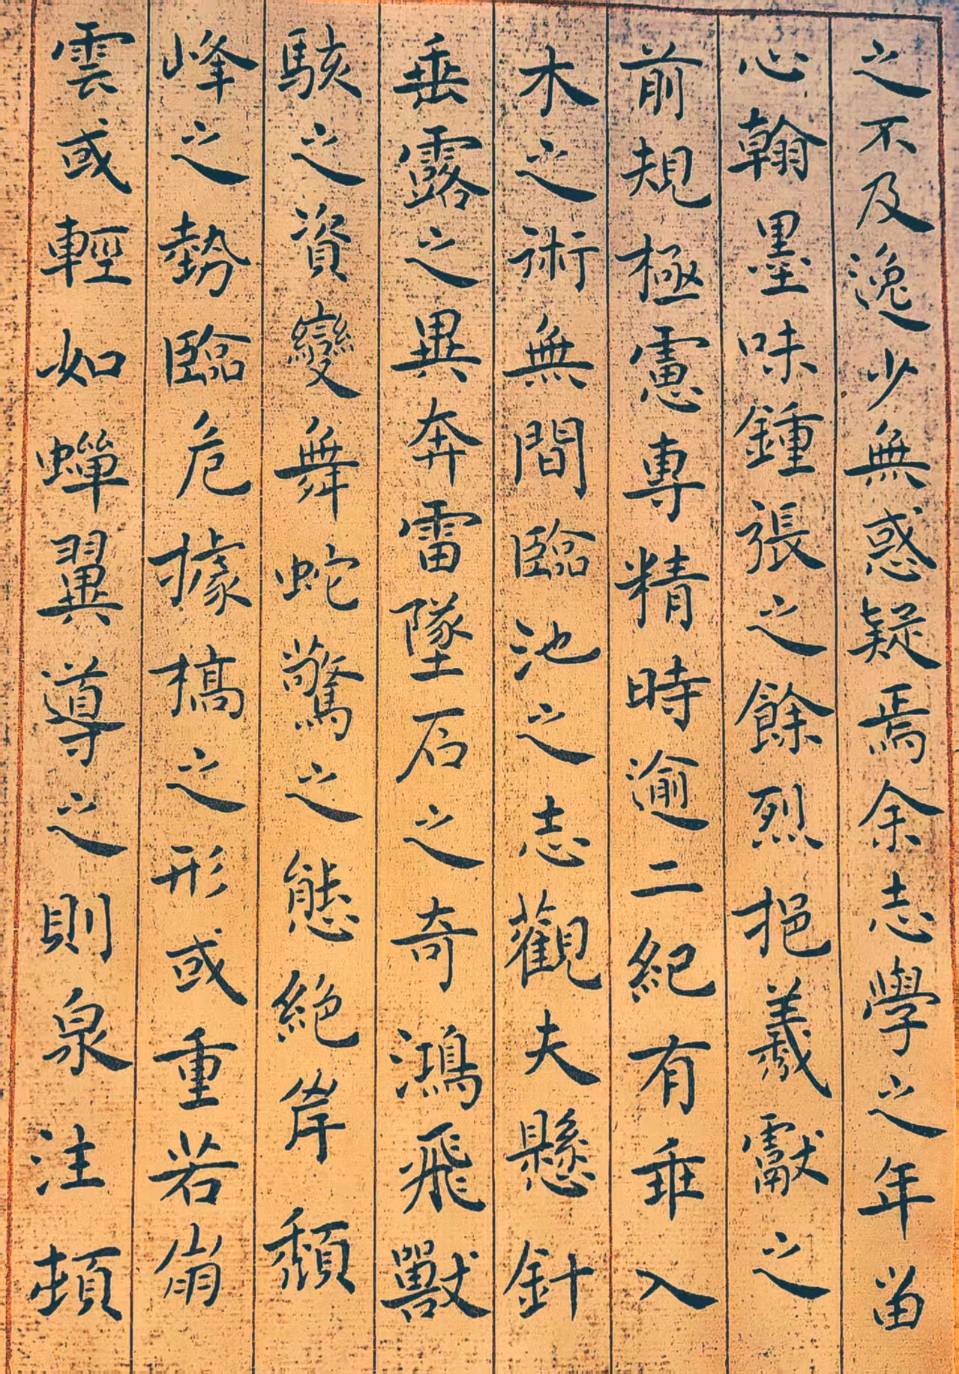 之不及逸少無惑疑焉余志學之年留
心翰墨味鍾張之餘烈挹羲獻之
前規極慮專精時逾二紀有乖入
木之術無間臨池之志觀夫懸針
垂露之異奔雷墜石之奇鴻飛獸
駭之資變舞蛇驚之態絕岸頹
峰之勢臨危據槁之形或重若崩
雲或輕如蟬翼導之則泉注頓